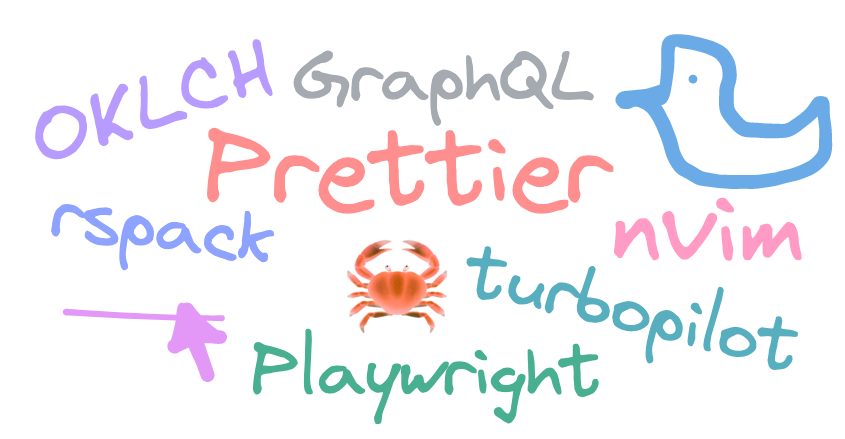 OKLCH
GraphQL
Prettier
rspack
nvim
turbopilot
Playwright